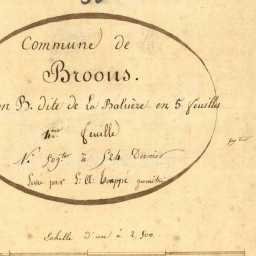 Commune de
Broons.
on B. dite de La Balrière en 5 feuilles
feuille
N.° 509 à 524 Dernier
Levée par géomètre
Echelle d'un à 2,500.